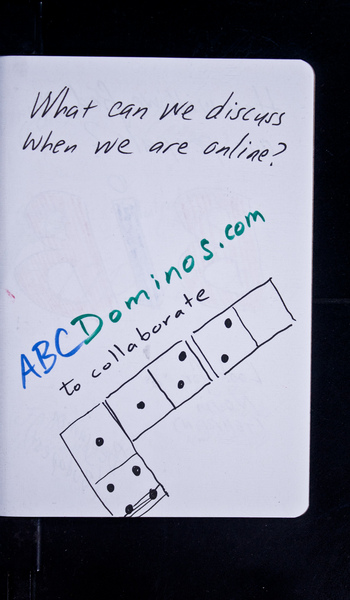 What can we discuss
when we are online?
ABCDominos.com
to collaborate